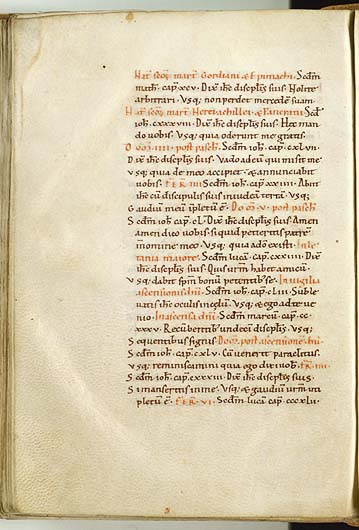 Nat̄ scōꝝ mart̄ Gordiani & Epimachi. Scdm̄
math̄. cap̄. xcv. Dix̄ ihc̄ disciplis̄ suis. Nolite
arbitrari. Usq; non perdet mercedē suam.
Nat̄ scōꝝ mart̄ Nerei achillei, & Scd̄
ioh̄. cxxxviii. Dix̄ ihc̄ disciplis̄ suis. Hec man
do vobis. Usq; quia oderunt me gratis.
Dom̄. iiii. post pasch̄. Scdm̄ ioh̄. cap̄. clvii.
Dix̄ ihc̄ disciplis̄ suis. Vado ad eū qui misit me
Usq; quia de meo accipiet. & annunciabit
vobis. fer̄ iiii. Scdm̄ ioh̄. cap̄. Abiit
ihc̄ cū discipulis suis in iudeā terrā. Usq;
Gaudiū meū īpletū ē. Dom̄. v. post pasch̄
Scdm̄ ioh̄. cap̄. cl. Dix̄ ihc̄ disciplis̄ suis. Amen
amen dico vobis. si quid petieritis patrē
in nomine meo. Usq; quia a dō existi. In le
tania maiore. Scdm̄ lucā. cap̄. cxxiii. Dix̄
ihc̄ disciplis̄ suis. Quis ur̄m habet amicū.
Usq; dabit sp̄m bonū petentib; se. In vigilia
ascensionis dn̄i. Scdm̄ ioh̄. cap̄. cliii. Suble
vatis ihc̄ oculis in celū. Usq; & ego ad te ve
nio. In ascensa dn̄i. Scdm̄ marcū. cap̄. cc
xxxv. Recūbentib; undeci disciplis̄. Usq;
Sequentibus signis. Dom̄. post ascensionē dn̄i.
Scdm̄ ioh̄. cap̄. cxlv. Cū venerit paraclitus.
Usq; reminiscamini quia ego dixi vob̄. fer̄. iiii.
Scdm̄ ioh̄. cap̄. cxxxiii. Dix̄ ihc̄ disciplis̄ suis.
Si manseritis in me. Usq; & gaudiū ur̄m im
pletū ē. fer̄. vi. Scdm̄ lucā. cap̄. cccxlii.